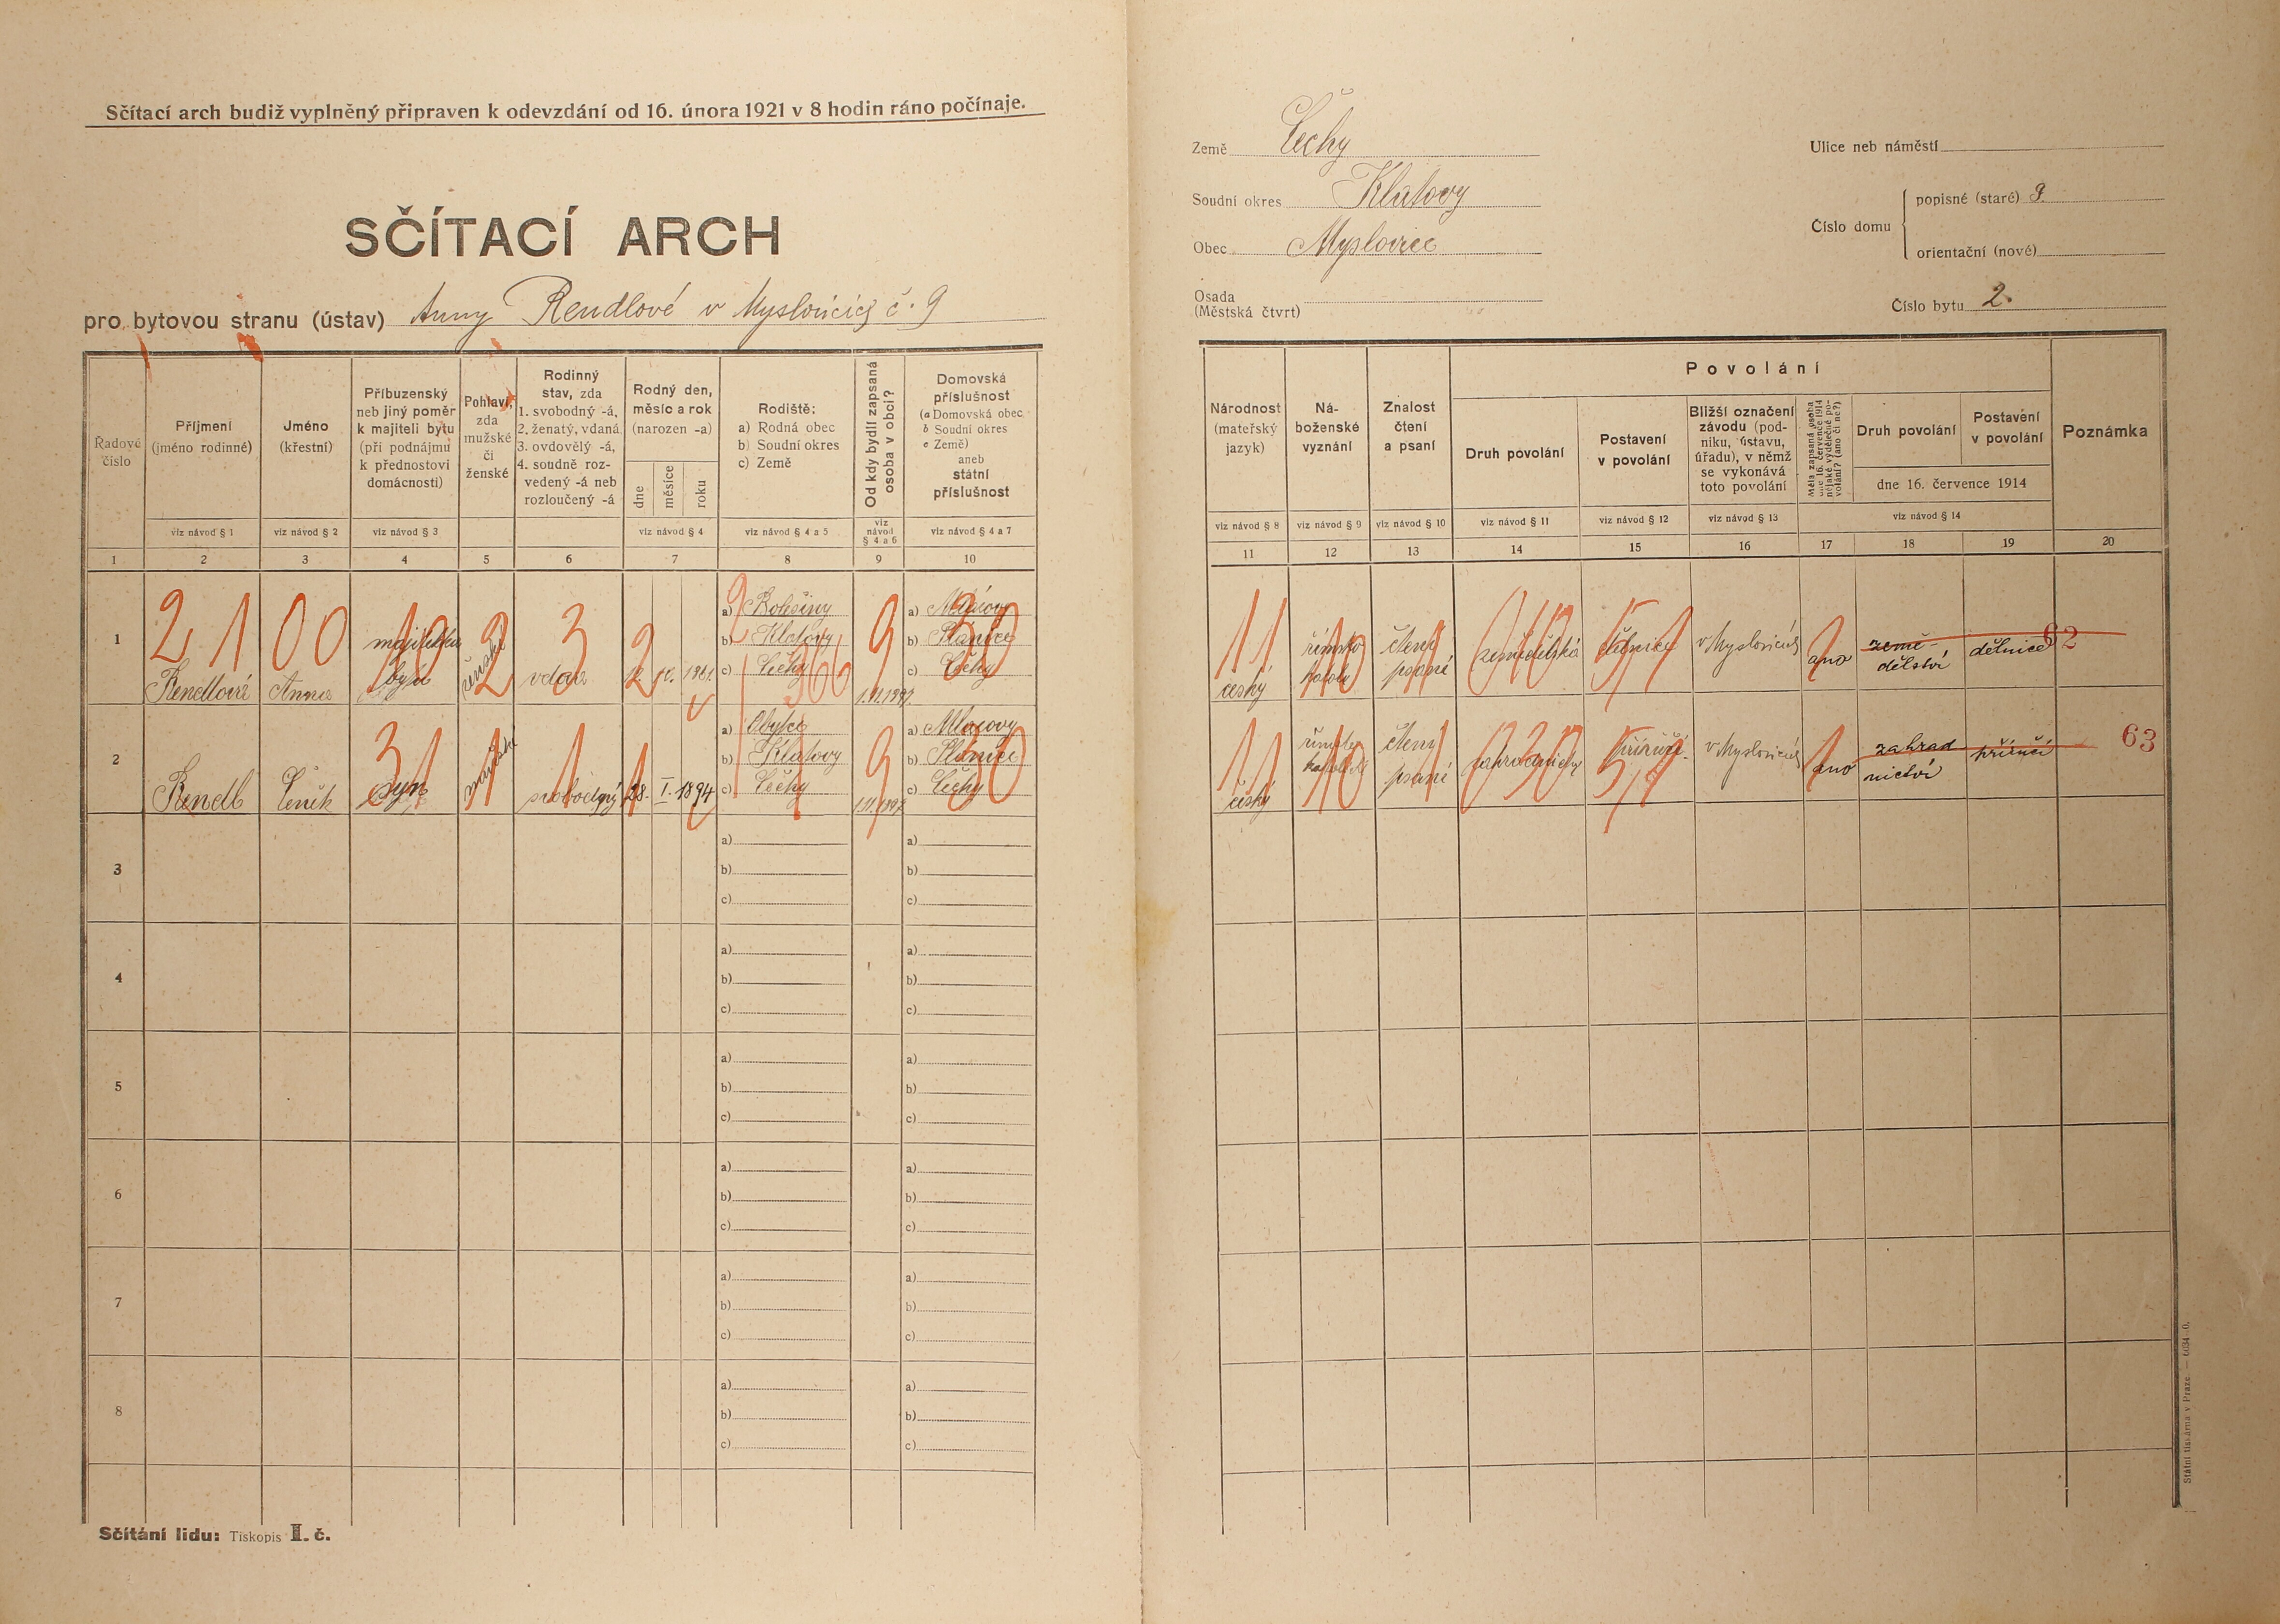 Sčítací arch budiž vyplněný připraven k odevzdání od 16. února 1921 v 8 hodin ráno počínaje.
SČÍTACÍ ARCH
pro bytovou stranu (ústav) Anny Rendlové v č. 9
Země Čechy
Soudní okres Klatovy
Obec Myslovice
Osada
(Městská čtvrt)
Ulice neb náměstí
Číslo domu
popisné (staré) 9.
orientační (nové)
Číslo bytu 2.
Řadové číslo
Příjmení
(jméno rodinné)
Jméno
(křestní)
Příbuzenský
neb jiný poměr
k majiteli bytu
(při podnájmu
k přednostovi
domácnosti)
Pohlaví,
zda
mužské
či
ženské
Rodinný
stav, zda
1. svobodný -á,
2. ženatý, vdaná
3. ovdovělý -á,
4. soudně roz-
vedený -á neb
rozloučený -á
Rodný den,
měsíc a rok
(narozen -a)
dne
měsíce
roku
Rodiště:
a) Rodná obec
b) Soudní okres
c) Země
Od kdy bydlí zapsaná
osoba v obci?
Domovská
příslušnost
(a Domovská obec
b Soudní okres
c Země)
aneb
státní
příslušnost
viz návod § 1
viz návod § 2
viz návod § 3
viz návod § 4
viz návod § 4 a 5
viz
návod
§ 4 a 6
viz návod § 4 a 7
1 2 3 4 5 6 7 8 9 10
Národnost
(mateřský
jazyk)
Ná-
boženské
vyznání
Znalost
čtení
a psaní
Povolání
Druh povolání
Postavení
v povolání
Bližší označení
závodu (pod-
niku, ústavu,
úřadu), v němž
se vykonává
toto povolání
Měla zapsaná osoba
dne 16. července 1914
nějaké výdělečné po-
volání? (ano či ne?)
Druh povolání
Postavení
v povolání
dne 16. července 1914
Poznámka
viz návod § 8
viz návod § 9
viz návod § 10
viz návod § 11
viz návod § 12
viz návod § 13
viz návod § 14
11 12 13 14 15 16 17 18 19 20
1
2 1 00 10 2 3 2
Rendlová Anna
majitelka
bytu
ženské
vdova
10.
a) Bolešiny
b) Klatovy
c) Čechy
9
a)
b) Plánice
c) Čechy
30
český
11
římsko
10
čtení
psaní
11
zemědělská
010
dělnice
v Myslovicích
ano
1
země-
dělství
dělnice
62
2
Rendl Čeněk
syn
31
mužské
1
svobodný
1
28. I. 1894
1
a)
b) Klatovy
c) Čechy
9
a) Mlázovy
b) Plánice
c) Čechy
30
český
11
10
čtení
psaní
11
030
v Myslovicích
ano
1
zahrad
nictví
příručí
63
3
a)
b)
c)
a)
b)
c)
4
a)
b)
c)
a)
b)
c)
5
a)
b)
c)
a)
b)
c)
6
a)
b)
c)
a)
b)
c)
7
a)
b)
c)
a)
b)
c)
8
a)
b)
c)
a)
b)
c)
Sčítání lidu: Tiskopis I. č.
Státní tiskárna v Praze.